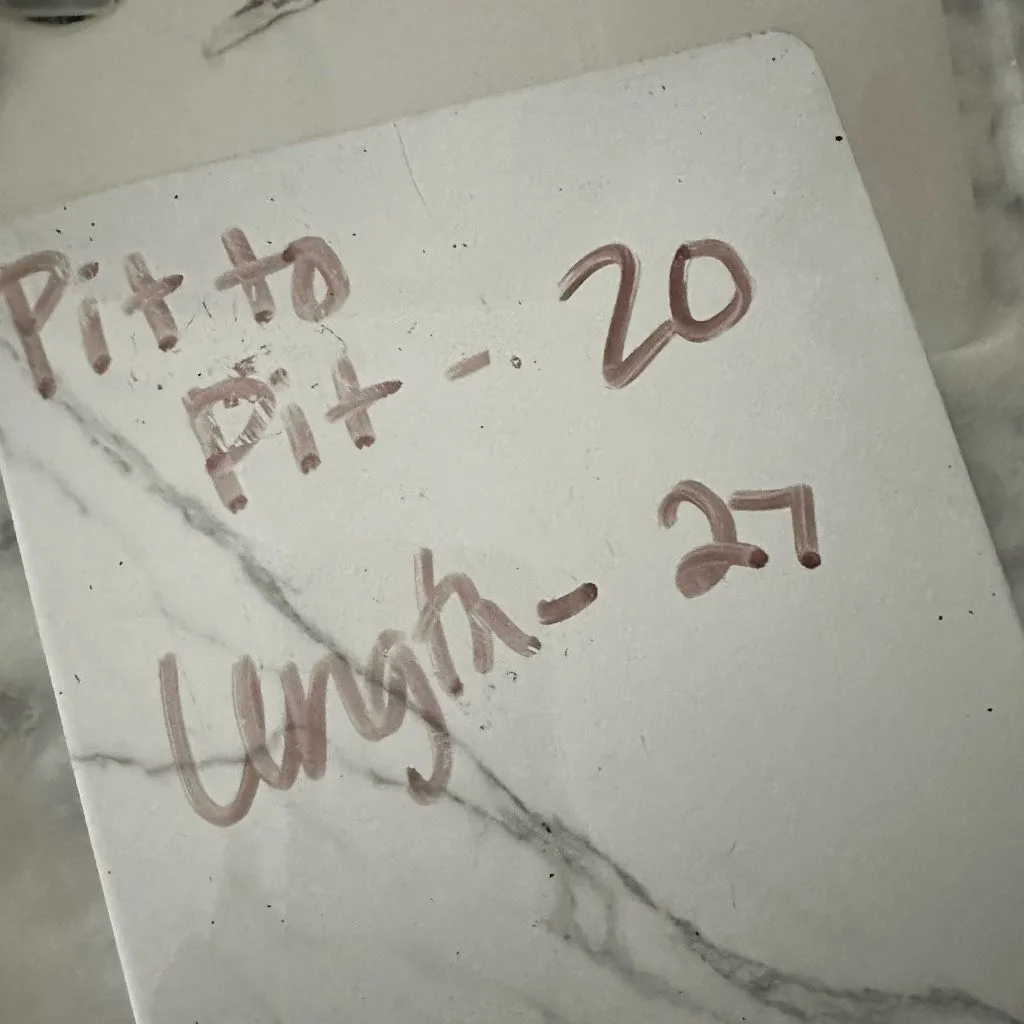 Pit to
Pit - 20
Length - 27